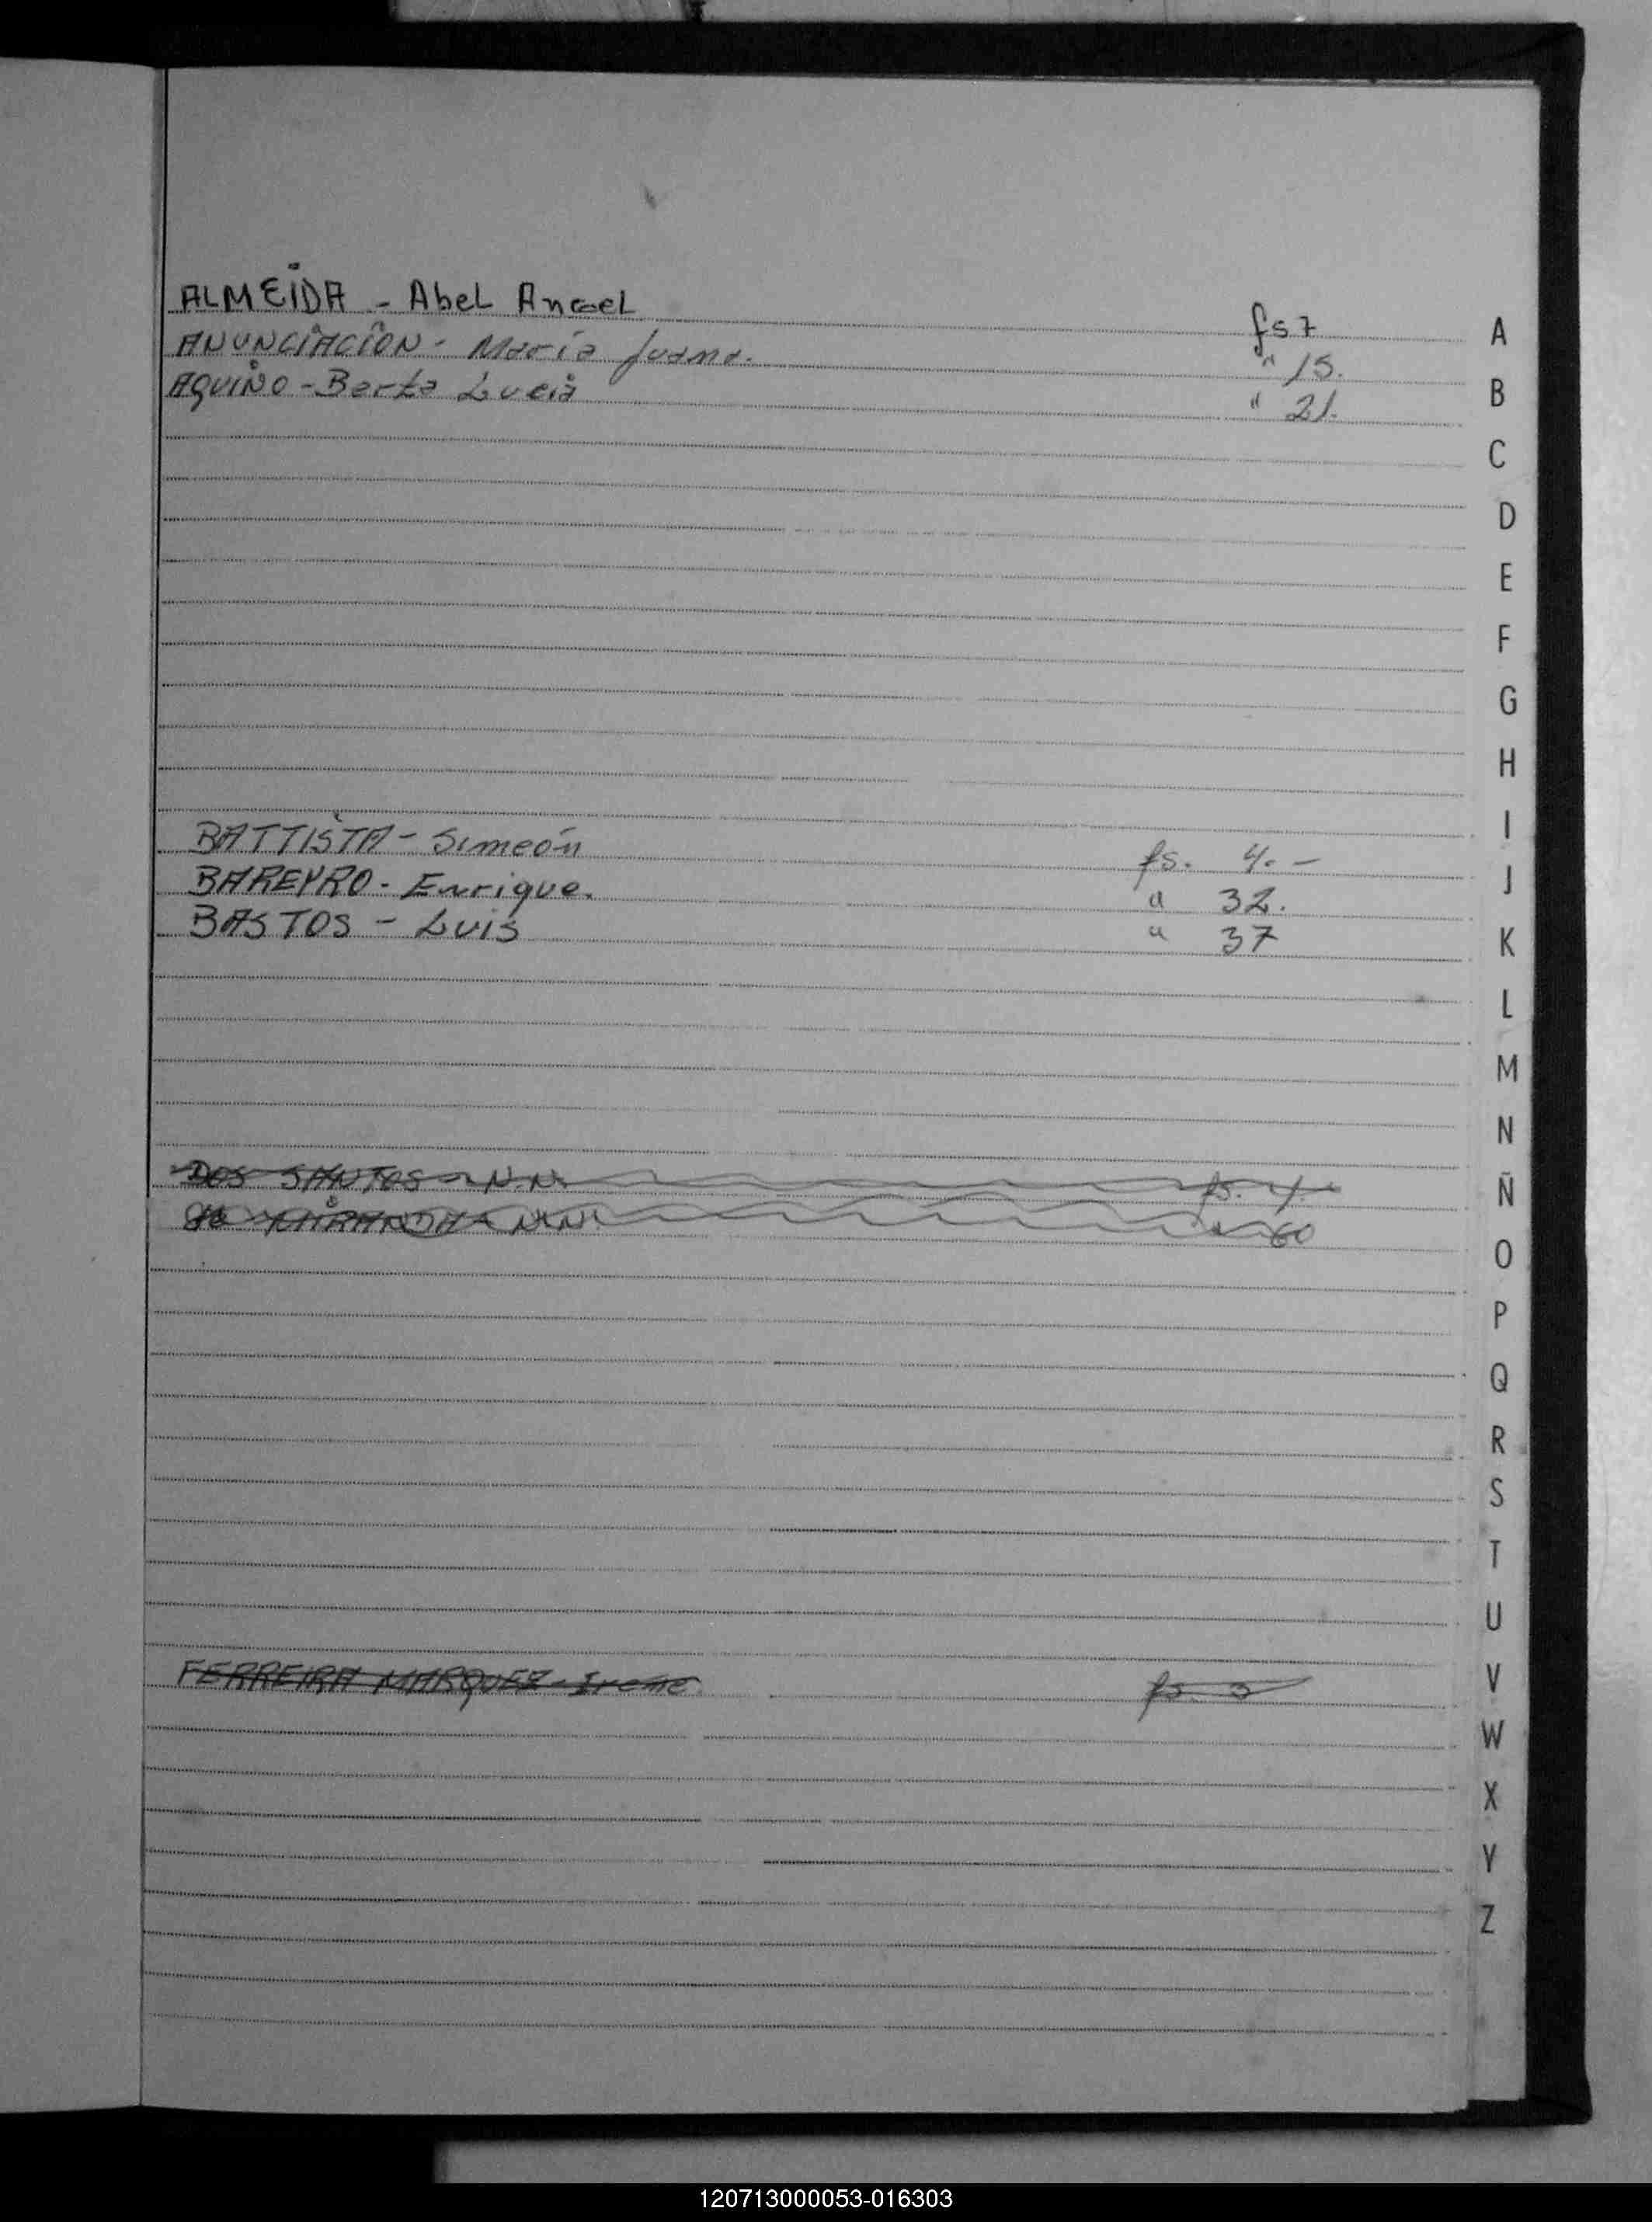 ALMEIDA - Abel Angel fs 7
ANUNCIACION - María Juana. " 15.
AQUINO - Berta Lucia " 21.
BATTISTA - Simeón fs. 4. -
BAREYRO - Enrique. " 32.
BASTOS - Luis " 37
DOS SANTOS - N.N. fs. 4.
N.N. " 60
FERREIRA MARQUEZ - Irene fs. 3
A
B
C
D
E
F
G
H
I
J
K
L
M
N
Ñ
O
P
Q
R
S
T
U
V
W
X
Y
Z
120713000053-016303